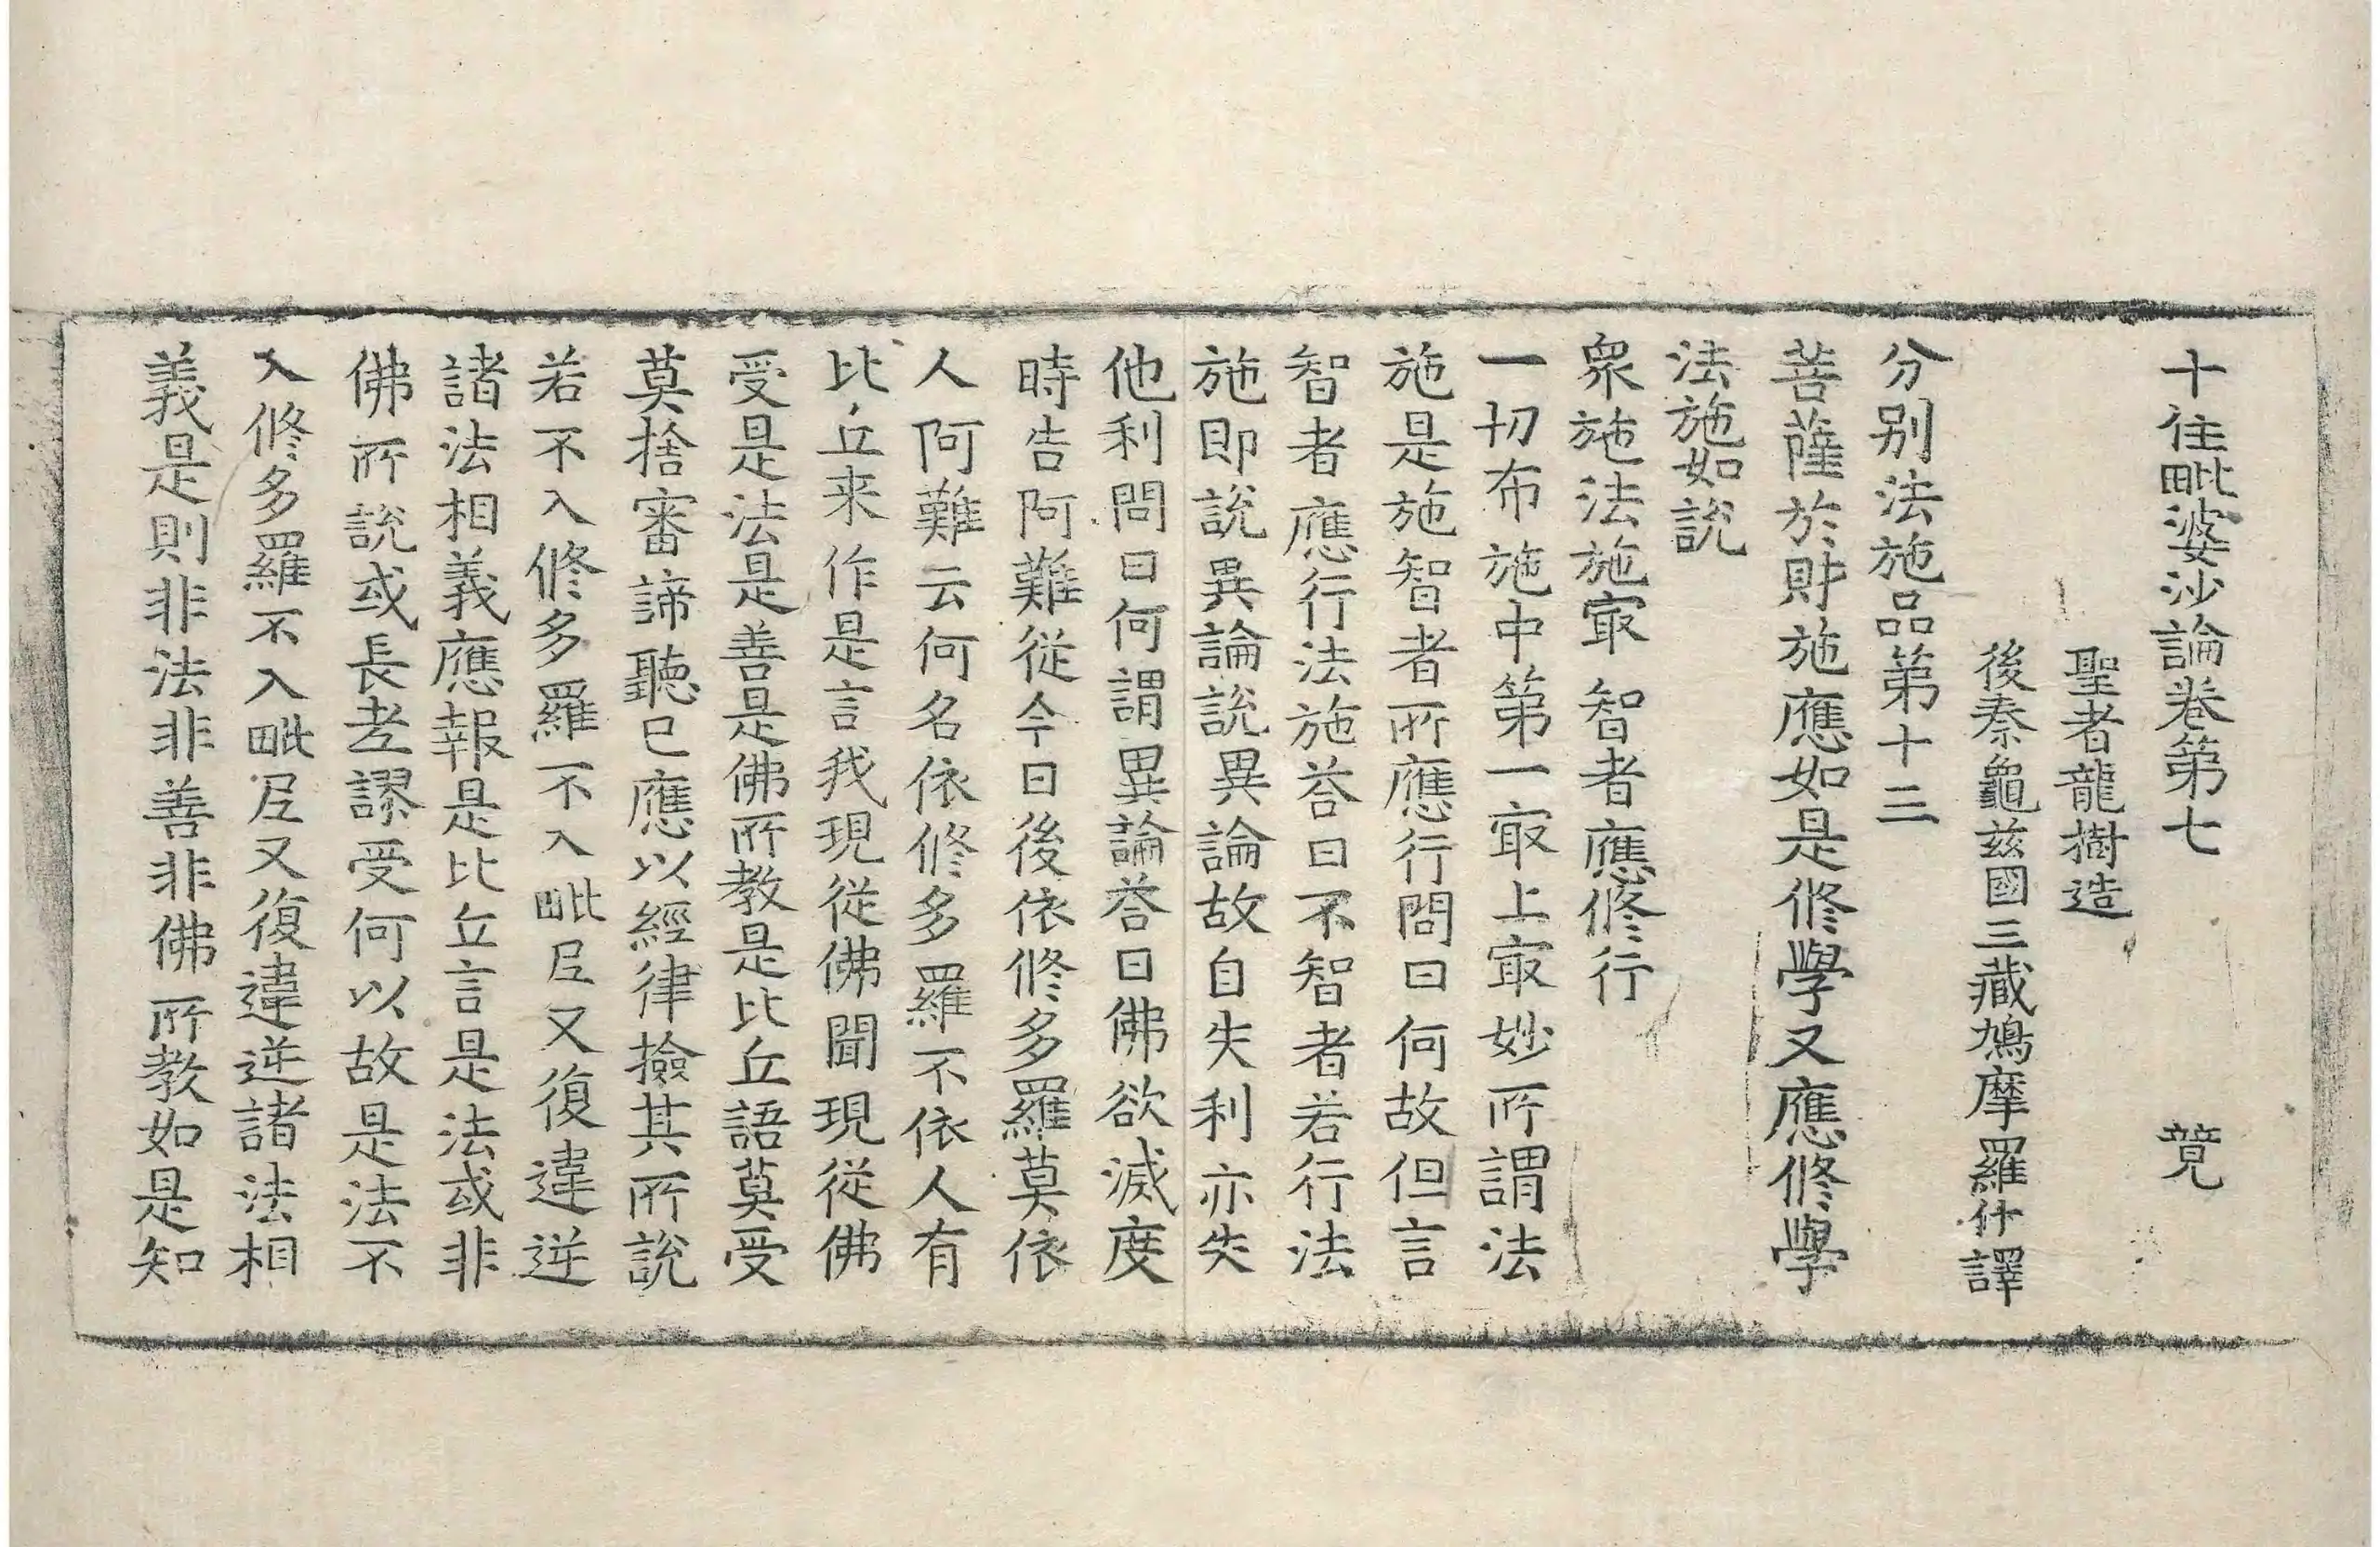 十住毗婆沙論卷第七　竟
聖者龍樹造
後秦龜茲國三藏鳩摩羅什譯
分別法施品第十三
菩薩於財施應如是修學又應修學
法施如說
衆施法施㝡智者應修行
一切布施中第一㝡上㝡妙所謂法
施是施智者所應行問曰何故但言
智者應行法施荅曰不智者若行法
施即說異論說異論故自失利亦失
他利問曰何謂異論荅曰佛欲滅度
時告阿難從今日後依修多羅莫依
人阿難云何名依修多羅不依人有
比丘来作是言我現從佛聞現從佛
受是法是善是佛所教是比丘語莫受
莫捨審諦聽已應以經律撿其所說
若不入修多羅不入毗尼又復違逆
諸法相義應報是比丘言是法或非
佛所說或長老謬受何以故是法不
入修多羅不入毗尼又復違逆諸法相
義是則非法非善非佛所教如是知